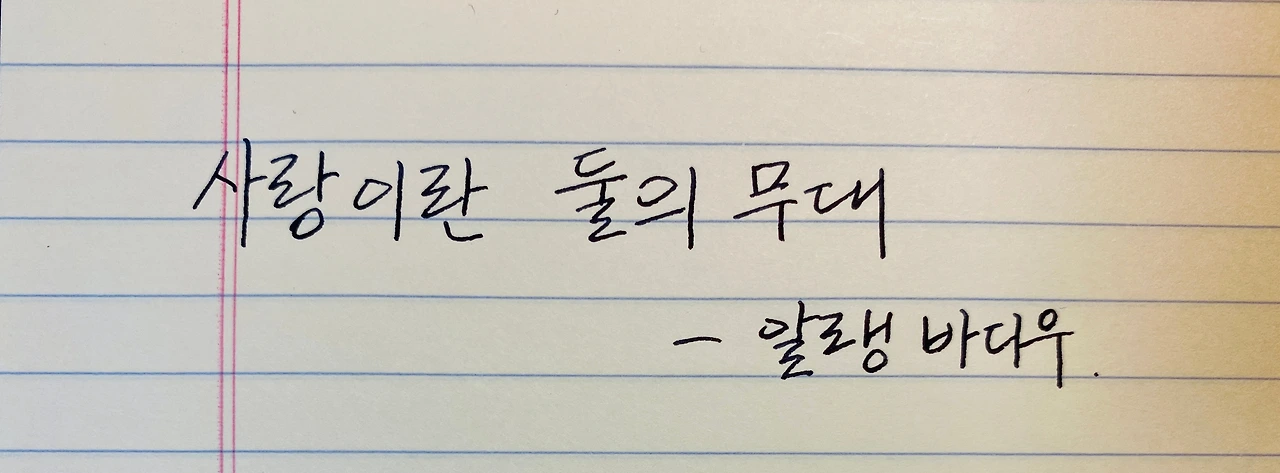 사랑이란 둘의 무대
- 알랭 바디우.